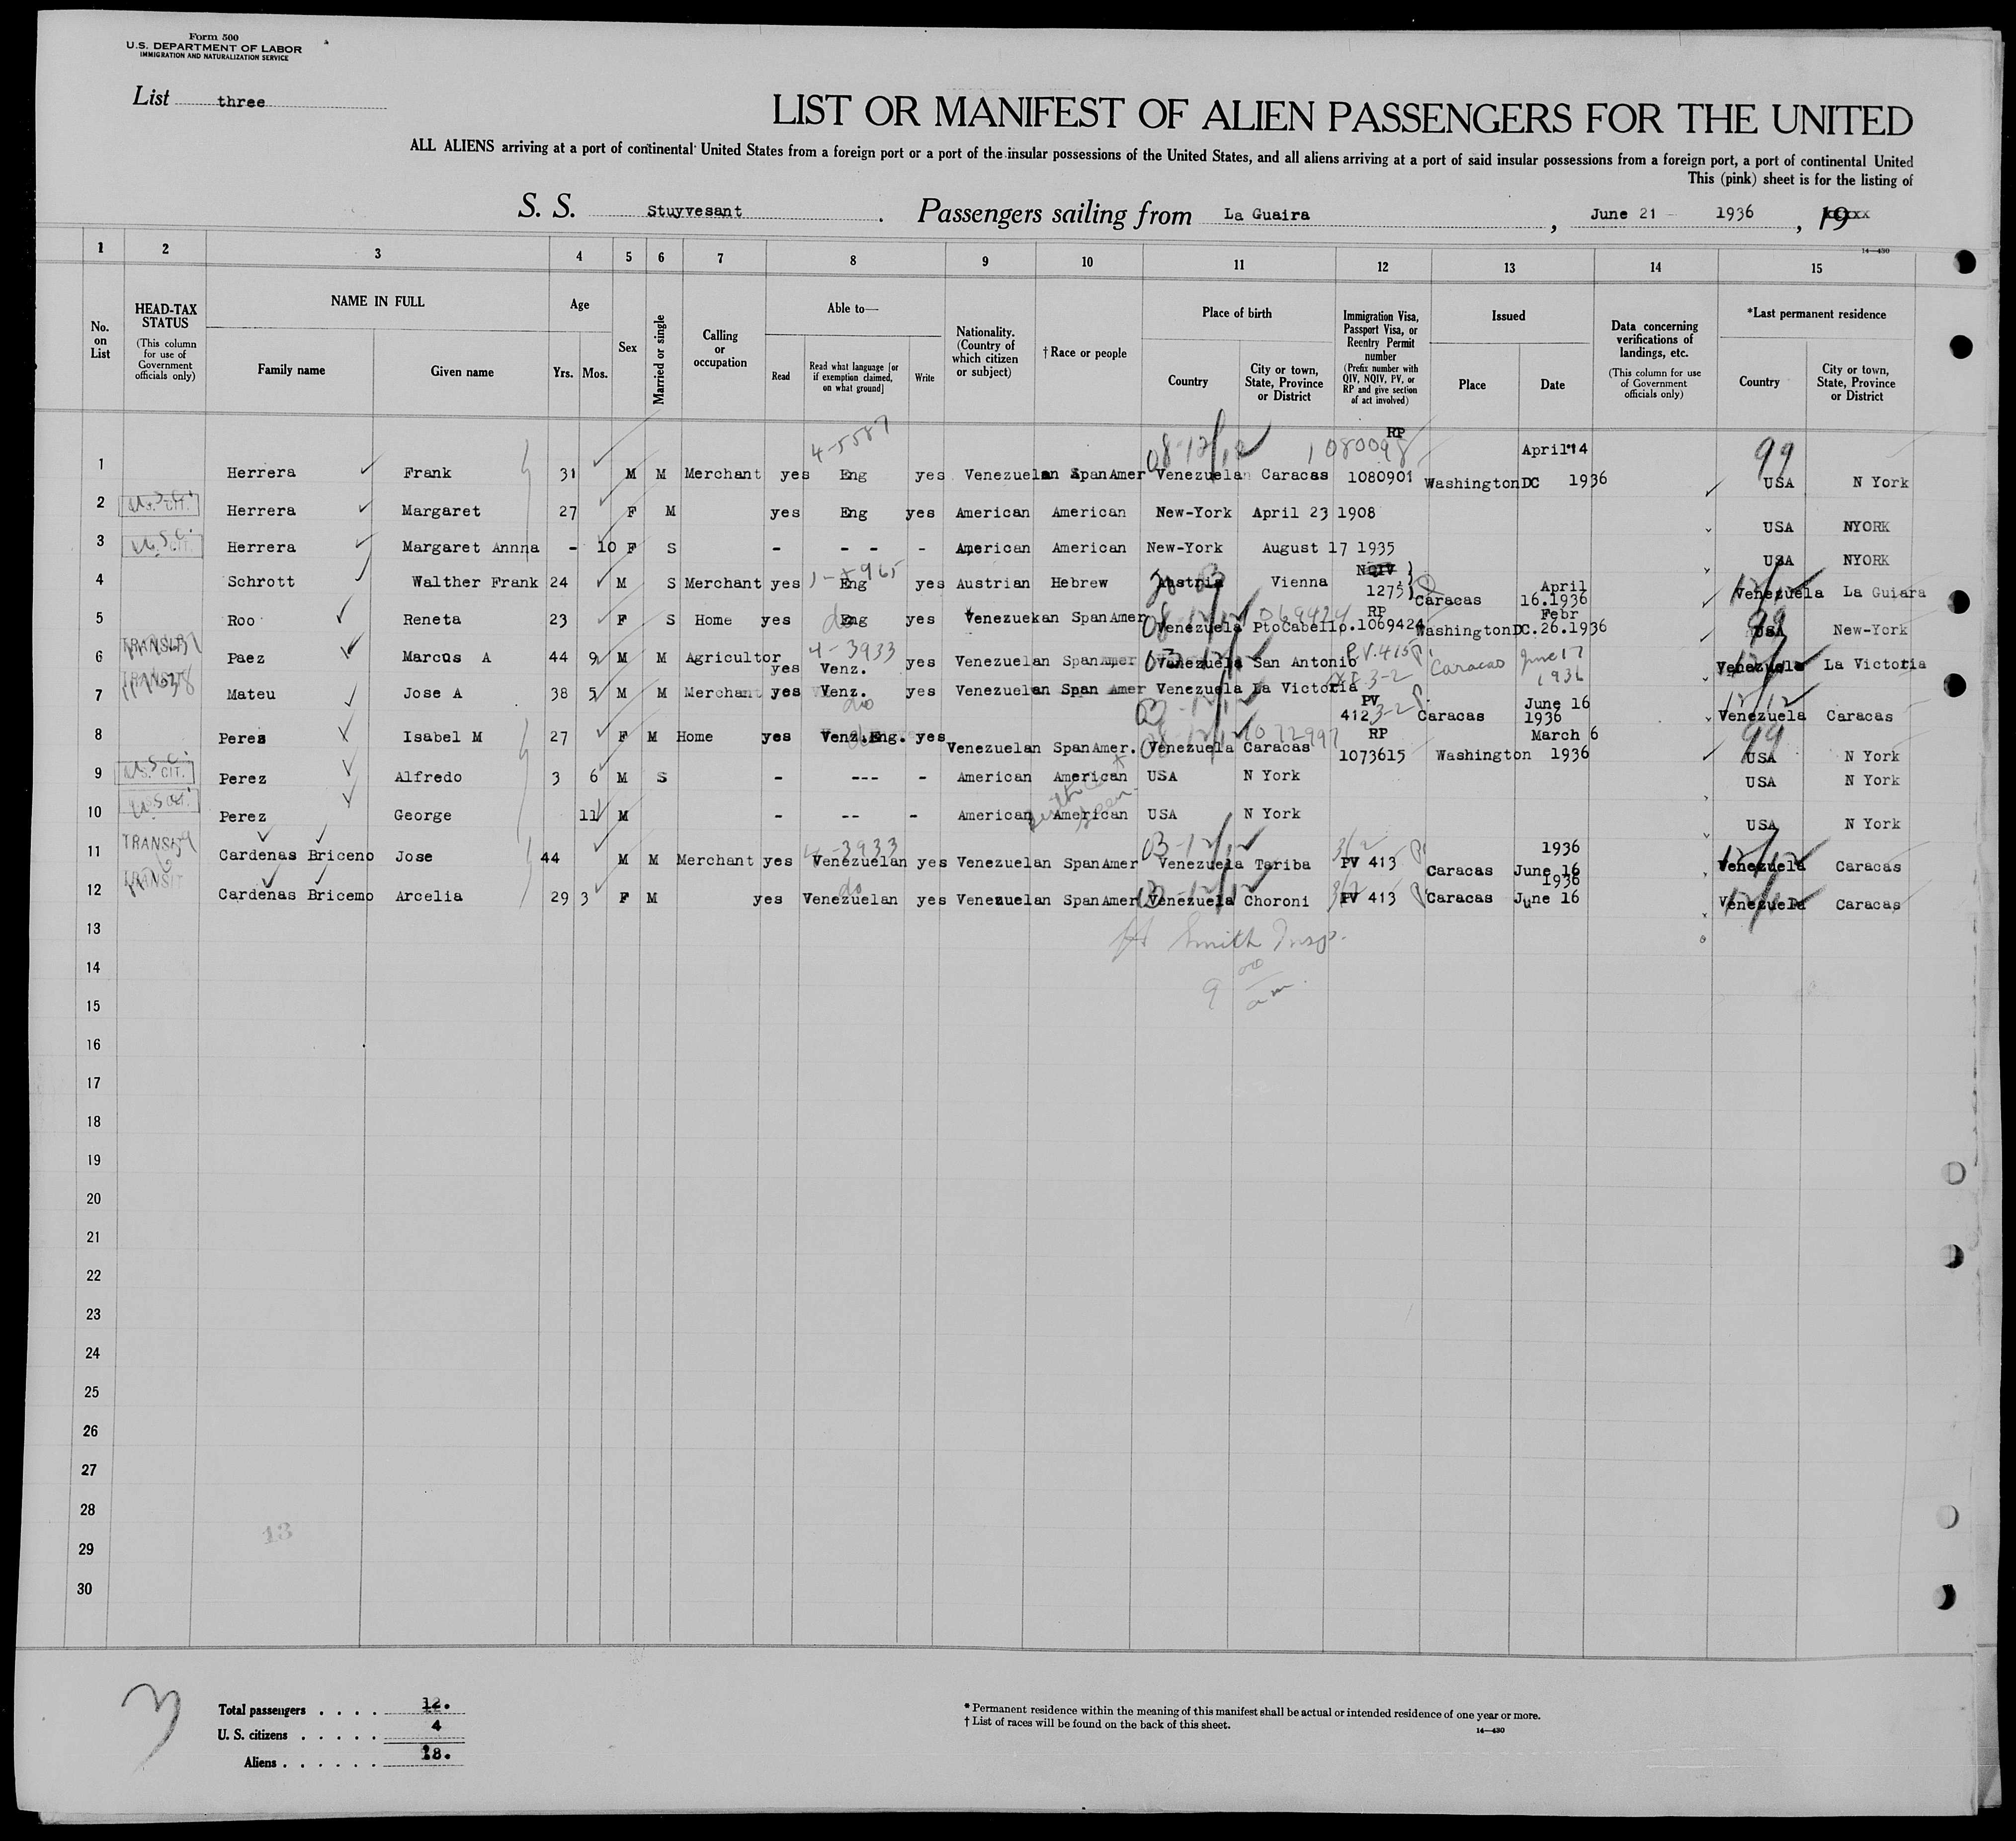 Form 500
U.S. DEPARTMENT OF LABOR
IMMIGRATION AND NATURALIZATION SERVICE
List three
LIST OR MANIFEST OF ALIEN PASSENGERS FOR THE UNITED
ALL ALIENS arriving at a port of continental United States from a foreign port or a port of the insular possessions of the United States, and all aliens arriving at a port of said insular possessions from a foreign port, a port of continental United
This (pink) sheet is for the listing of
S. S. Stuyvesant. Passengers sailing from La Guaira, June 21 - 1936, 19
14—430
1 2 3 4 5 6 7 8 9 10 11 12 13 14 15
No. on List
HEAD-TAX STATUS (This column for use of Government officials only)
NAME IN FULL
Family name
Given name
Age
Yrs. Mos.
Sex
Married or single
Calling or occupation
Able to—
Read
Read what language [or if exemption claimed, on what ground]
Write
Nationality. (Country of which citizen or subject)
† Race or people
Place of birth
Country
City or town, State, Province or District
Immigration Visa, Passport Visa, or Reentry Permit number (Prefix number with QIV, NQIV, PV, or RP and give section of act involved)
Issued
Place
Date
Data concerning verifications of landings, etc. (This column for use of Government officials only)
*Last permanent residence
Country
City or town, State, Province or District
4-5587 08-12/12 1080098 RP April 14 99
1 Herrera Frank 31 M M Merchant yes Eng yes Venezuelan SpanAmer Venezuelan Caracas 1080901 WashingtonDC 1936 USA N York
2 U.S. CIT. Herrera Margaret 27 F M yes Eng yes American American New-York April 23 1908 USA NYORK
3 U.S.C. Herrera Margaret Annna - 10 F S - - - - American American New-York August 17 1935 USA NYORK
4 Schrott Walther Frank 24 M S Merchant yes Eng yes Austrian Hebrew Austria Vienna NQIV 1275 Caracas April 16.1936 Venezuela La Guiara
5 Roo Reneta 23 F S Home yes Eng yes Venezuekan SpanAmer Venezuela PtoCabello. RP 1069424 WashingtonDC. Febr 26.1936 99 USA New-York
6 TRANSIT Paez Marcos A 44 9 M M Agricultor yes 4-3933 Venz. yes Venezuelan SpanAmer Venezuela San Antonio P.V. 415 Caracas June 17 1936 Venezuela La Victoria
7 TRANSIT Mateu Jose A 38 5 M M Merchant yes Venz. yes Venezuelan Span Amer Venezuela La Victoria PV 412 3-2 Caracas June 16 1936 12/12 Venezuela Caracas
8 Perez Isabel M 27 F M Home yes Venz.Eng. yes Venezuelan SpanAmer. Venezuela Caracas 1072997 RP 1073615 Washington March 6 1936 99 USA N York
9 U.S. CIT. Perez Alfredo 3 6 M S - --- - American American USA N York USA N York
10 Perez George 11 M - -- - American American USA N York USA N York
11 TRANSIT Cardenas Briceno Jose 44 M M Merchant yes 4-3933 Venezuelan yes Venezuelan SpanAmer 03-12/12 Venezuela Tariba 3/2 PV 413 Caracas 1936 June 16 12/12 Venezuela Caracas
12 TRANSIT Cardenas Bricemo Arcelia 29 3 F M yes do Venezuelan yes Venezuelan SpanAmer Venezuela Choroni 3/2 PV 413 Caracas 1936 June 16 Venezuela Caracas
13
Smith Insp.
14
9 00 am.
15
16
17
18
19
20
21
22
23
24
25
26
27
28
13
29
30
3
Total passengers 12.
U. S. citizens 4
Aliens
* Permanent residence within the meaning of this manifest shall be actual or intended residence of one year or more.
† List of races will be found on the back of this sheet.
14—430